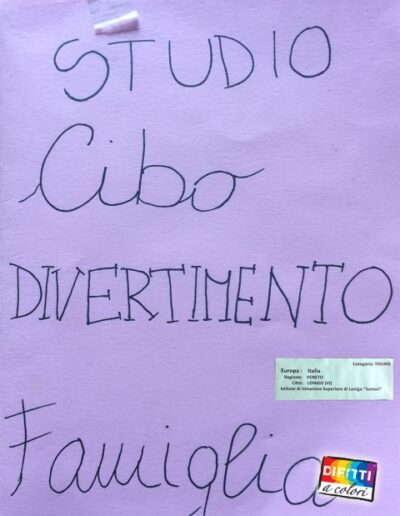 STUDIO
Cibo
DIVERTIMENTO
Categoria: YOUNG
Europa : Italia
Regione: VENETO
Città: LONIGO (VI)
Istituto di Istruzione Superiore di Lonigo "Sartori"
Famiglia
DIRITTI
a colori